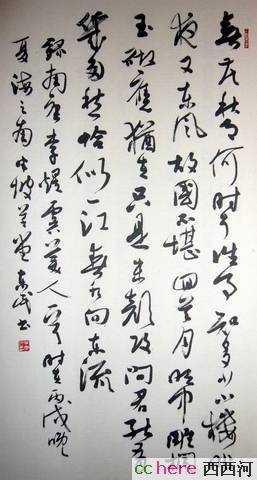 春花秋月何时了往事知多少小樓昨
夜又东风故國不堪回首月明中雕阑
玉砌應猶在只是朱颜改问君能有
幾多愁恰似一江春水向东流
錄南唐李煜虞美人一首时在丙戌晚
夏海之南坡草堂东民书
cchere 西西河